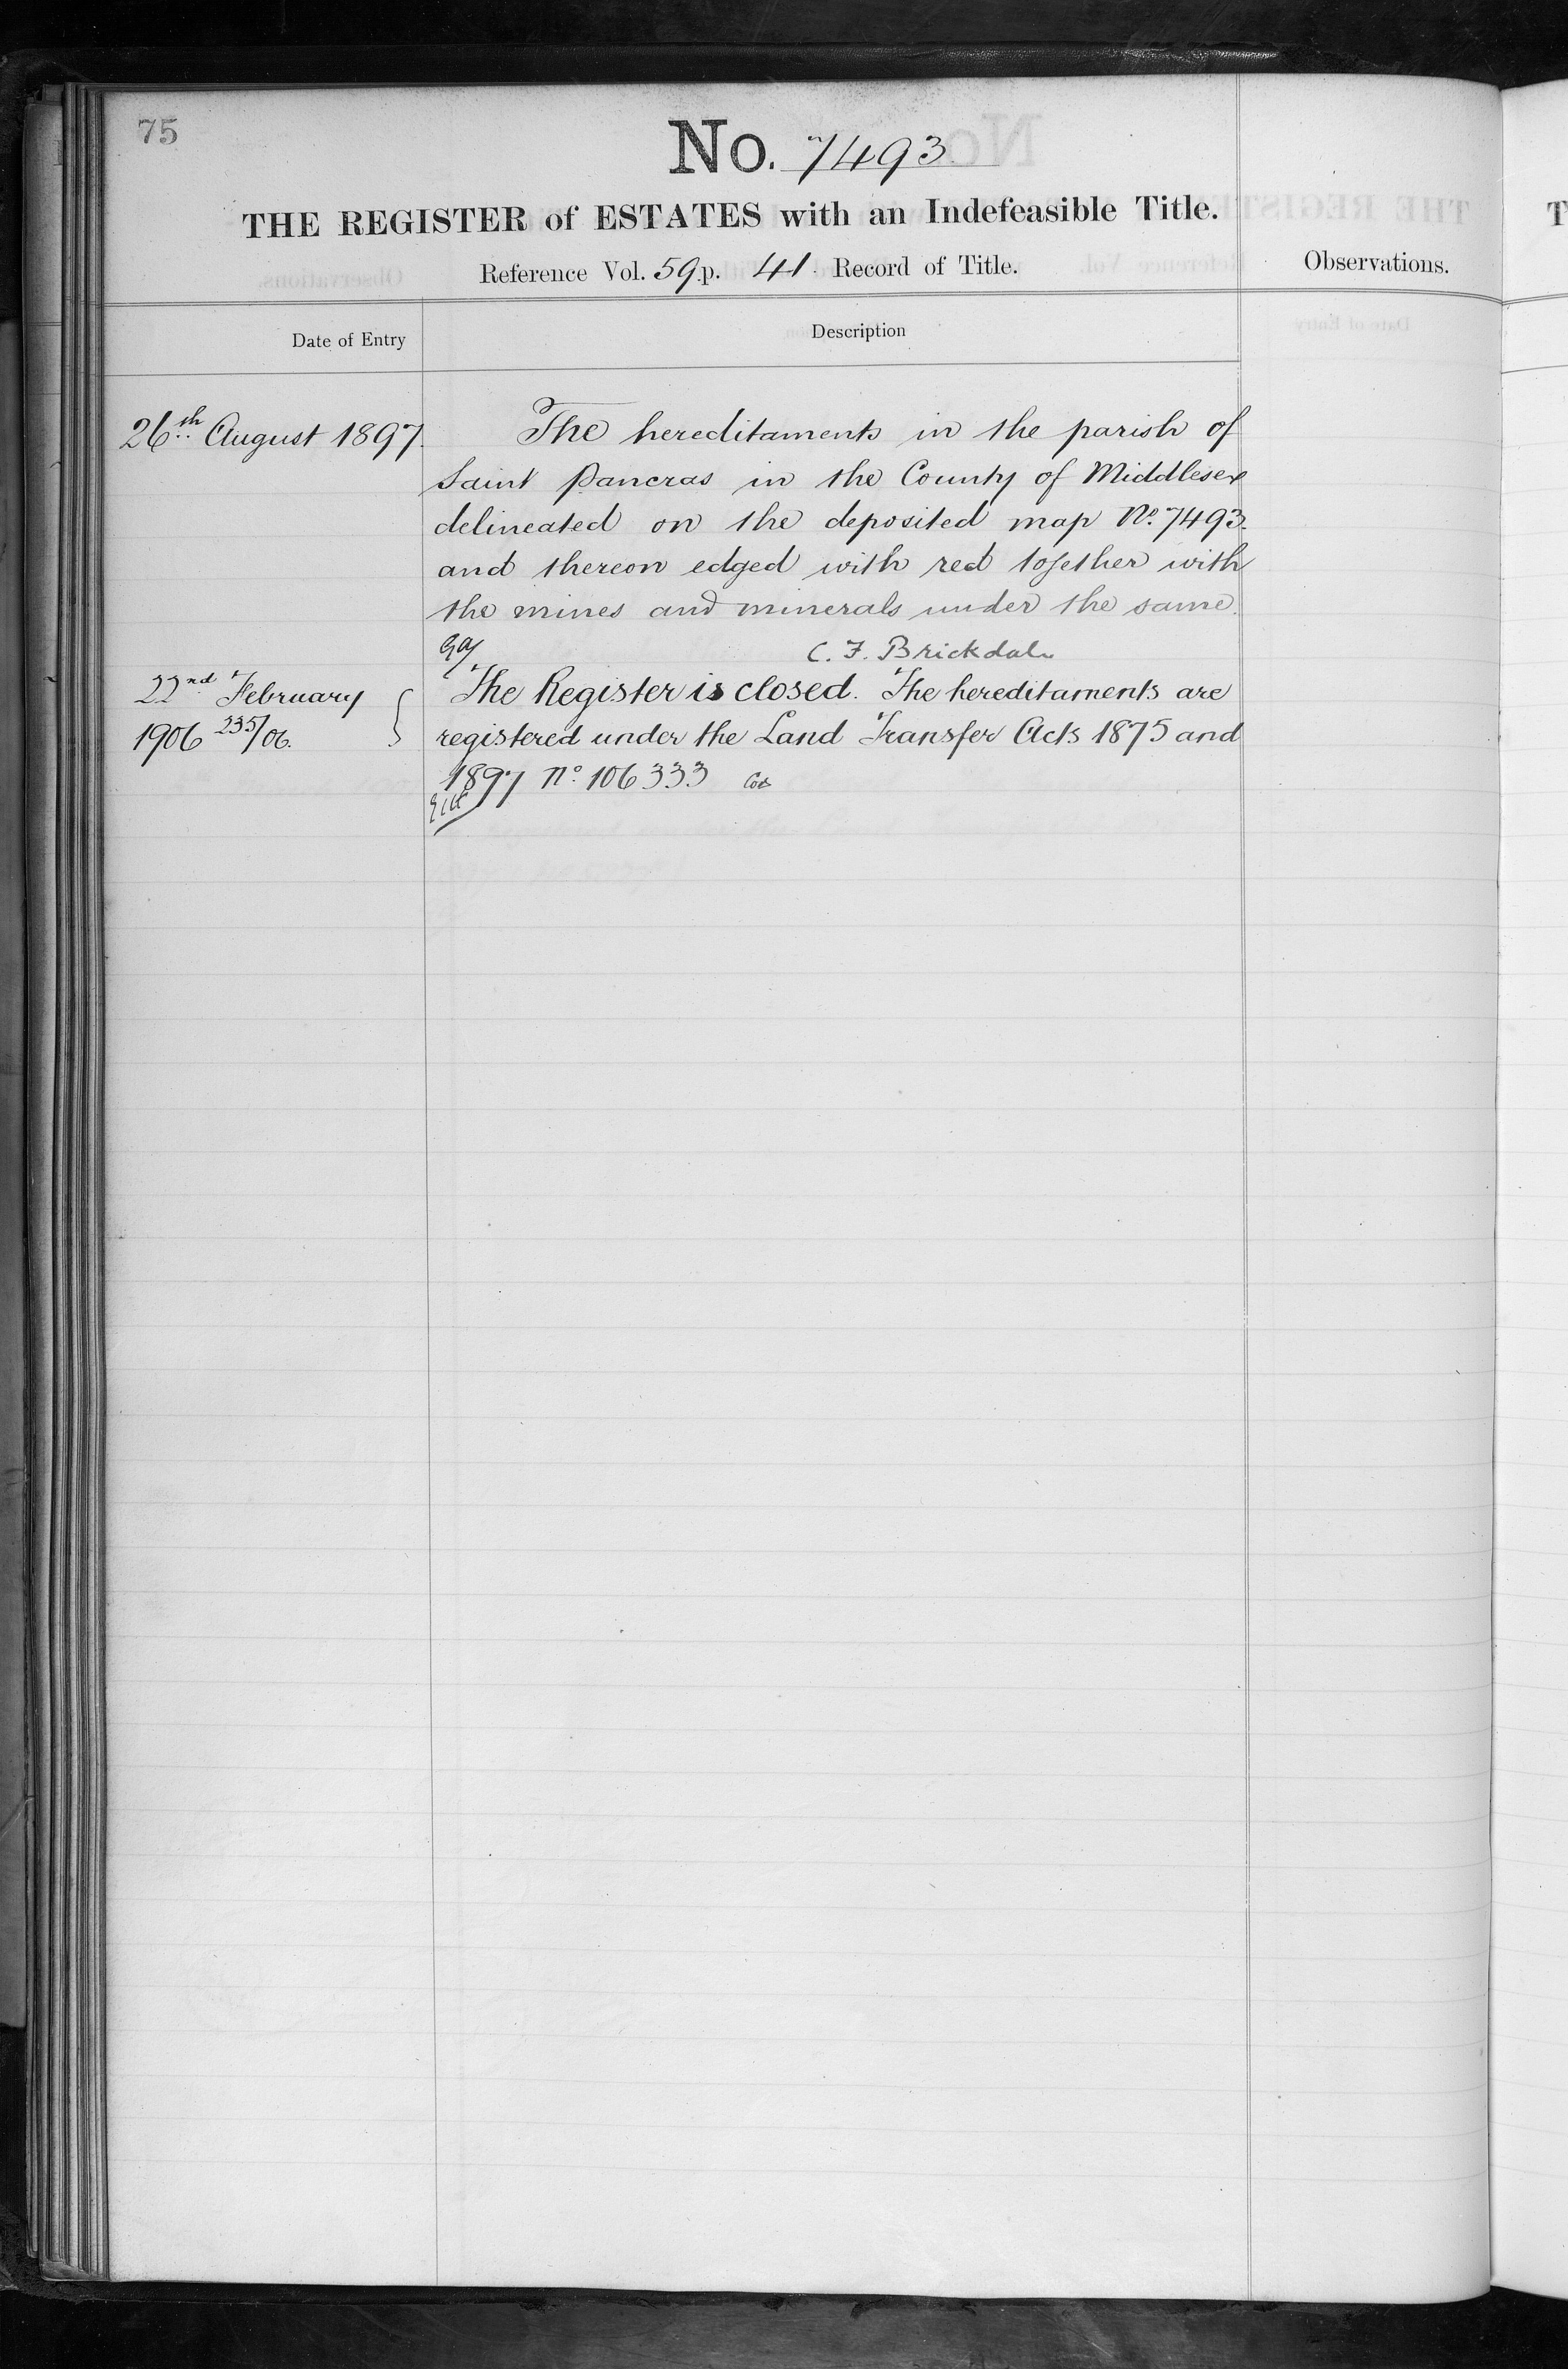 75
No. 7493
THE REGISTER of ESTATES with an Indefeasible Title.
Reference Vol. 59 p. 41 Record of Title.
Observations.
Date of Entry
Description
26th August 1897.
The hereditaments in the parish of
Saint Pancras in the County of Middlesex
delineated on the deposited map No. 7493.
and thereon edged with red together with
the mines and minerals under the same.
C. F. Brickdale
22nd February
1906 235/06.
The Register is closed. The hereditaments are
registered under the Land Transfer Acts 1875 and
1897 No 106333